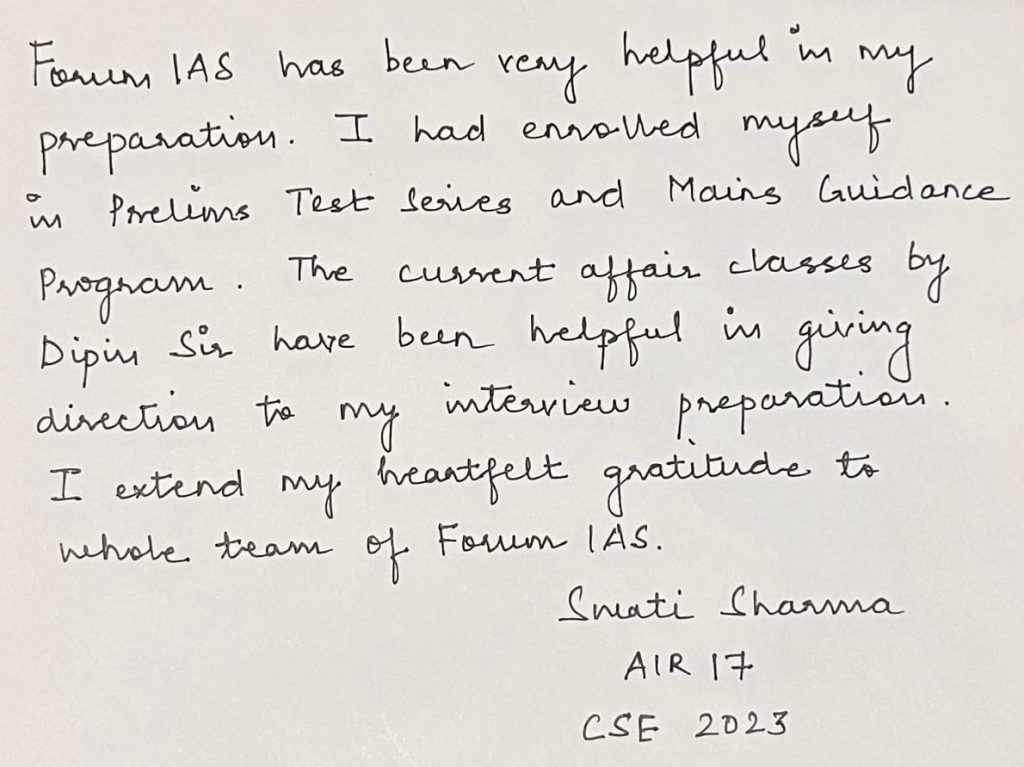 Forum IAS has been very helpful in my
preparation. I had enrolled myself
in Prelims Test Series and Mains Guidance
Program. The current affair classes by
Dipin Sir have been helpful in giving
direction to my interview preparation.
I extend my heartfelt gratitude to
whole team of Forum IAS.
Swati Sharma
AIR 17
CSE 2023